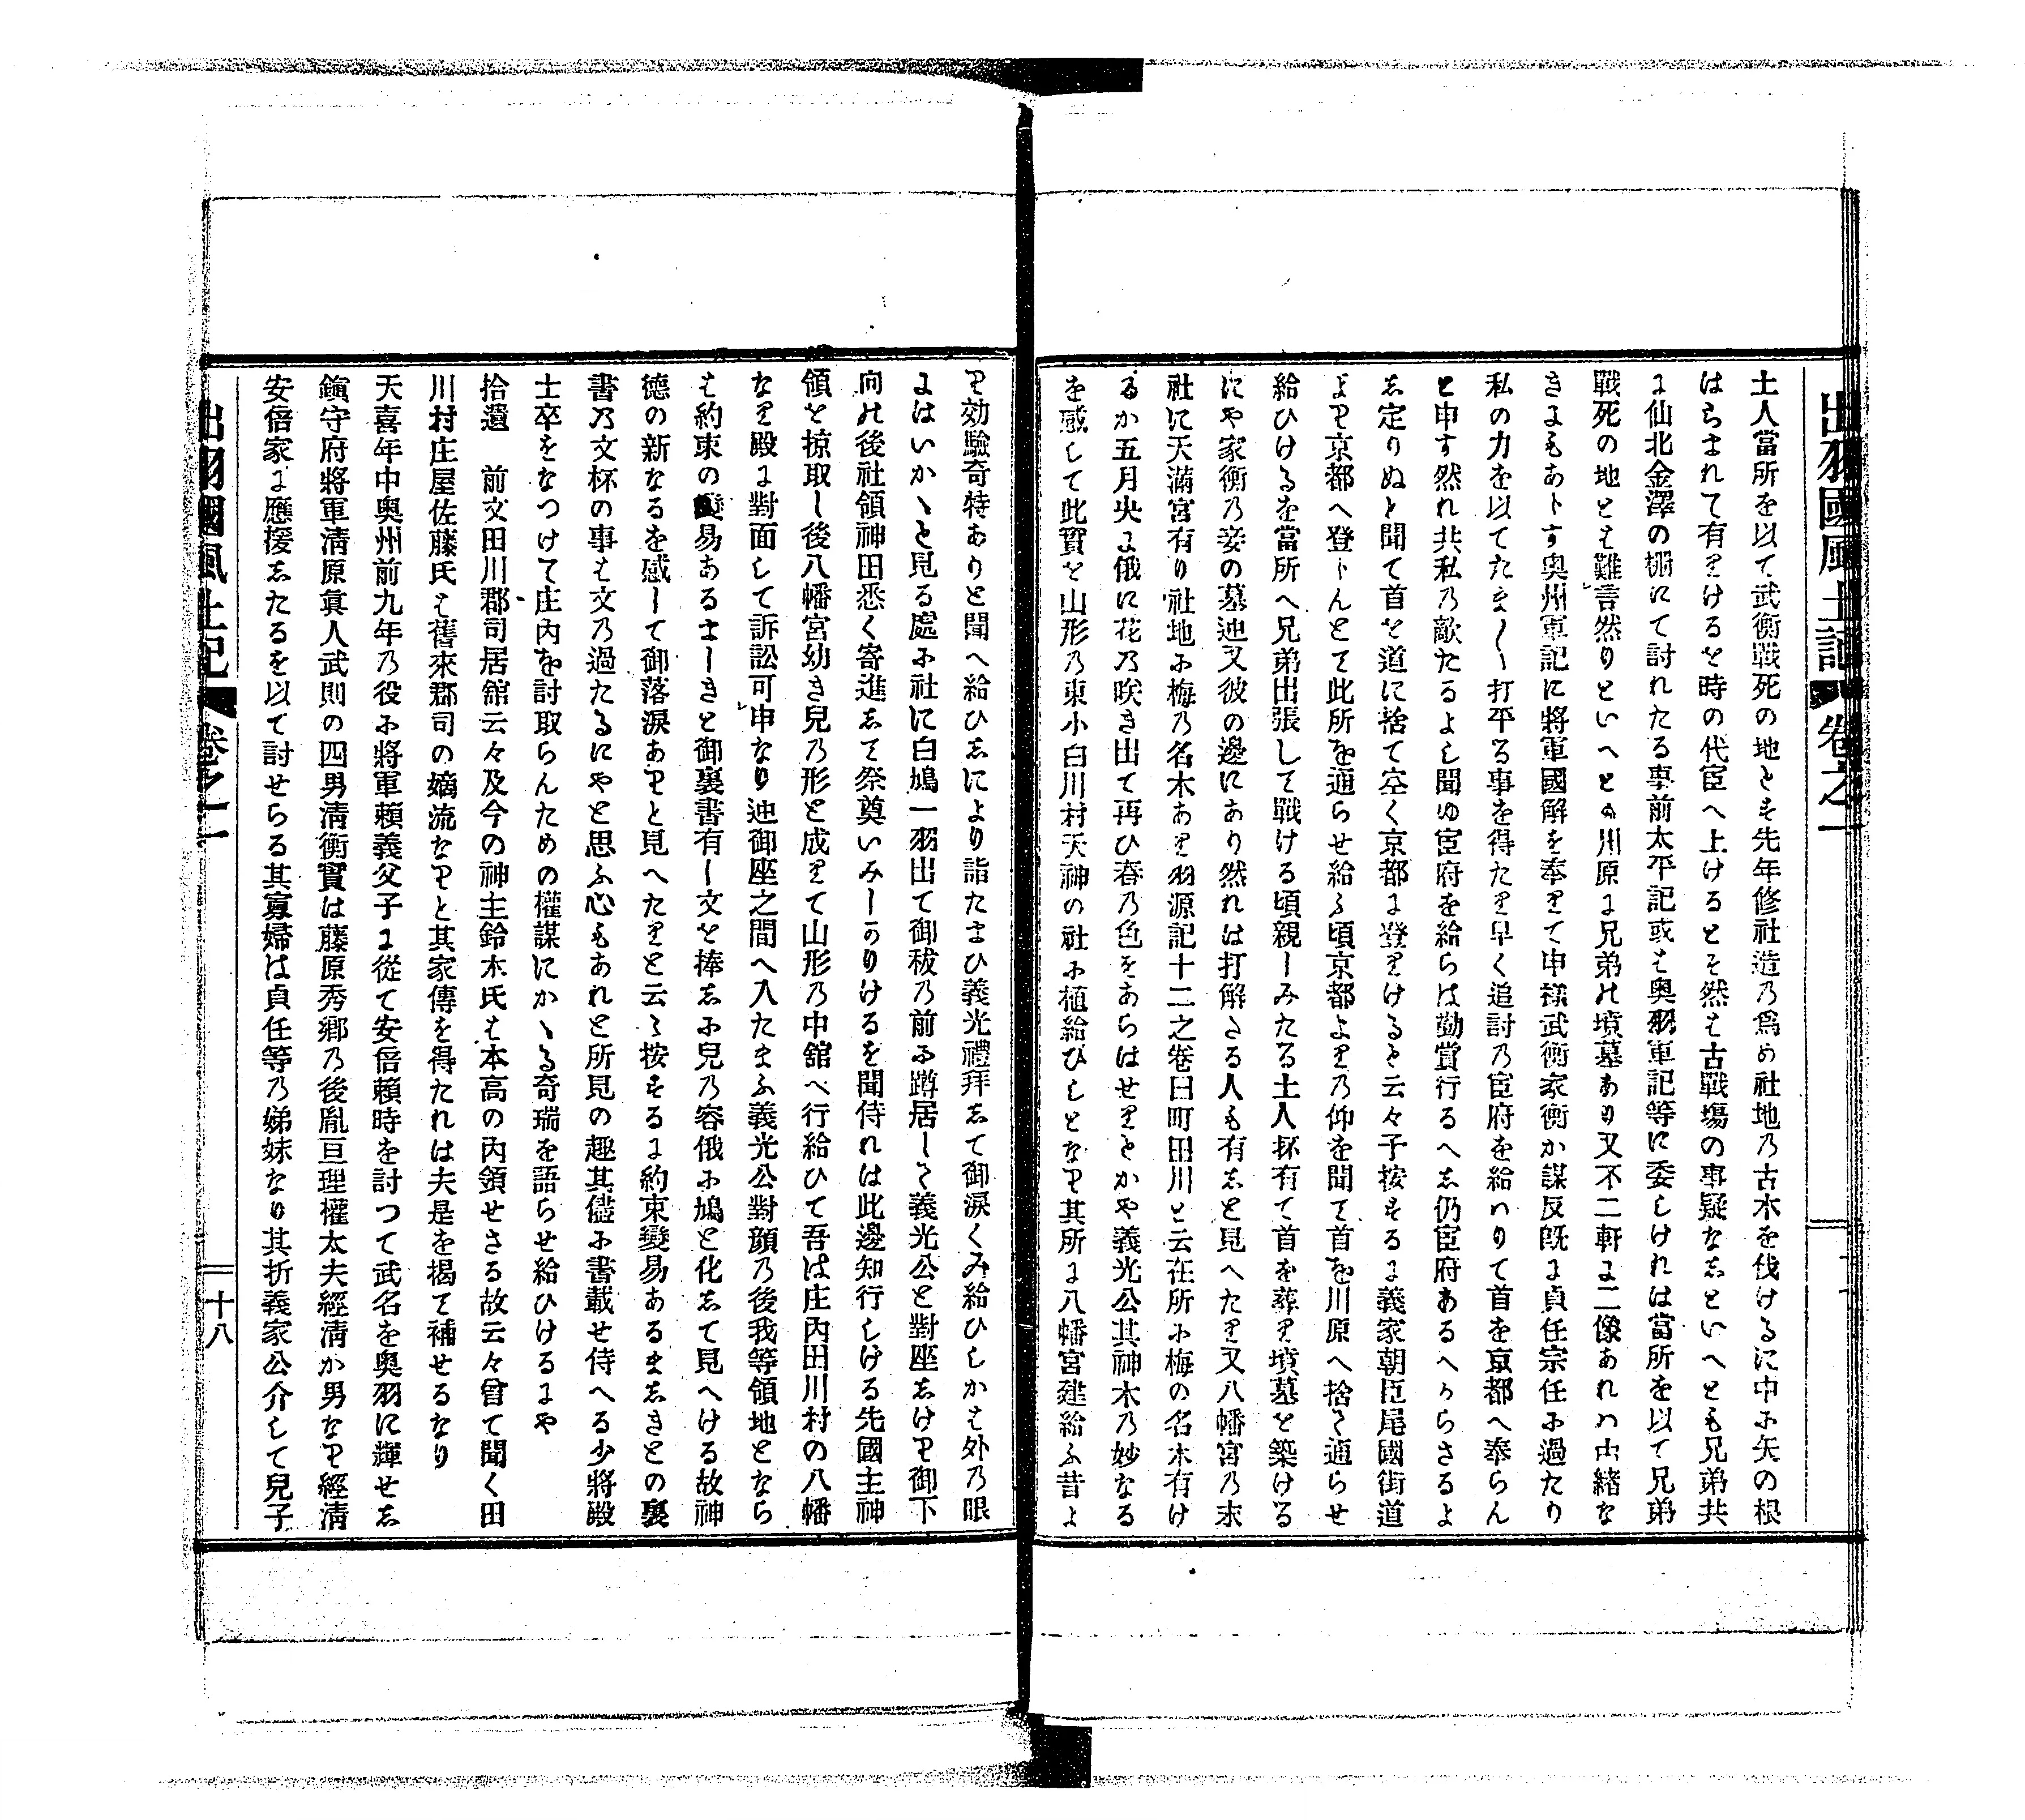 出羽國風土記 卷之一
土人當所を以て武衡戰死の地とも先年修社造乃爲め社地乃古木を伐けるに中ふ矢の根
はらまれて有りけるを時の代宦へ上けるとそ然は古戰塲の事疑なしといへとも兄弟共
に仙北金澤の柵にて討れたる事前太平記或は奥羽軍記等に委しけれは當所を以て兄弟
戰死の地とは難レ言然りといへとも川原に兄弟の墳墓あり又不二軒に二像あれハ由緒な
きにもあらす奥州軍記に將軍國解を奉りて申樣武衡家衡か謀反既に貞任宗任ふ過たり
私の力を以てたま〱打平る事を得たり早く追討乃宦府を給ハりて首を京都へ奉らん
と申す然れ共私乃敵たるよし聞ゆ宦府を給らは勤賞行るへし仍宦府あるへからさるよ
し定りぬと聞て首を道に捨て空く京都に登りけると云々予按するに義家朝臣尾國街道
より京都へ登らんとて此所を通らせ給ふ頃京都よりの仰を聞て首を川原へ捨て通らせ
給ひけるを當所へ兄弟出張して戰ける頃親しみたる土人抔有て首を葬り墳墓を築ける
にや家衡乃妾の墓迚又彼の邊にあり然れは打解さる人も有しと見へたり又八幡宮乃末
社に天滿宮有り社地ふ梅乃名木あり羽源記十二之卷曰町田川と云在所ふ梅の名木有け
るか五月央に俄に花乃咲き出て再ひ春乃色をあらはせりとかや義光公其神木乃妙なる
を感して此實を山形乃東小白川村天神の社ふ植給ひしとなり其所に八幡宮建給ふ昔よ
り効驗奇特ありと聞へ給ひしにより詣たまひ義光禮拜して御淚くみ給ひしかは外乃眼
にはいかゝと見る處ふ社に白鳩一羽出て御祓乃前ふ蹲居して義光公と對座しけり御下
向の後社領神田悉く寄進して祭奠いみしかりけるを聞侍れは此邊知行しける先國主神
領を掠取し後八幡宮幼き兒乃形と成りて山形乃中舘へ行給ひて吾は庄内田川村の八幡
なり殿に對面して訴訟可レ申なり迚御座之間へ入たまふ義光公對顏乃後我等領地となら
は約束の變易あるましきと御裏書有し文を捧しふ兒乃容俄ふ鳩と化して見へける故神
德の新なるを感して御落淚ありと見へたりと云々按するに約束變易あるましきとの裏
書乃文杯の事は文乃過たるにやと思ふ心もあれと所見の趣其儘ふ書載せ侍へる少將殿
士卒をなつけて庄内を討取らんための權謀にかゝる奇瑞を語らせ給ひけるにや
拾遺　前文田川郡司居舘云々及今の神主鈴木氏は本高の内領せさる故云々曾て聞く田
川村庄屋佐藤氏は舊來郡司の嫡流なりと其家傳を得たれは夫是を揭て補せるなり
天喜年中奥州前九年乃役ふ將軍賴義父子に從て安倍賴時を討つて武名を奥羽に輝せし
鎭守府將軍淸原眞人武則の四男淸衡實は藤原秀鄕乃後胤亘理權太夫經淸か男なり經淸
安倍家に應援したるを以て討せらる其寡婦は貞任等乃娣妹なり其折義家公介して兒子
出羽國風土記 卷之一 十八